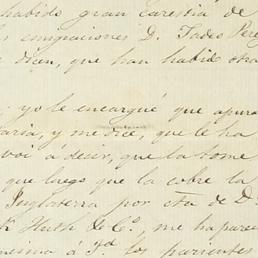 habido gran carestia de
emigraciones D. Tadeo Per
dicen, que han habido otra
yo le encargué que apura
taria, y me dice, que le ha
voi á decir, que la tome
que luego que la cobre la
Inglaterra por cta de D.
Huth & Co., me ha pare
á Yd. los parientes